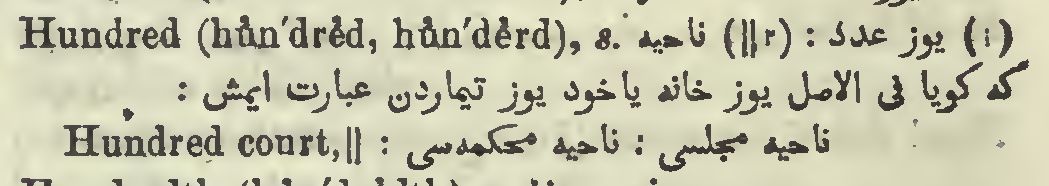 Hundred (hŭn′drĕd, hŭn′dĕrd), s. (1) یوز عدد : (r‖) ناحیه
كه كویا فی الاصل یوز خانه یاخود یوز تیماردن عبارت ایمش :
Hundred court,‖ ناحیه مجلسی : ناحیه محكمه‌سی :